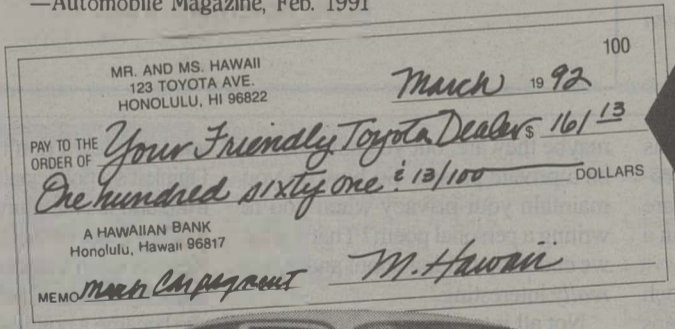 —Automobile Magazine, Feb. 1991
100
MR. AND MS. HAWAII
123 TOYOTA AVE.
HONOLULU, HI 96822
March 19 92
PAY TO THE ORDER OF Your Friendly Toyota Dealer $ 161 13
One hundred sixty one & 13/100 DOLLARS
A HAWAIIAN BANK
Honolulu, Hawaii 96817
MEMO March Car payment
M. Hawaii
Not all